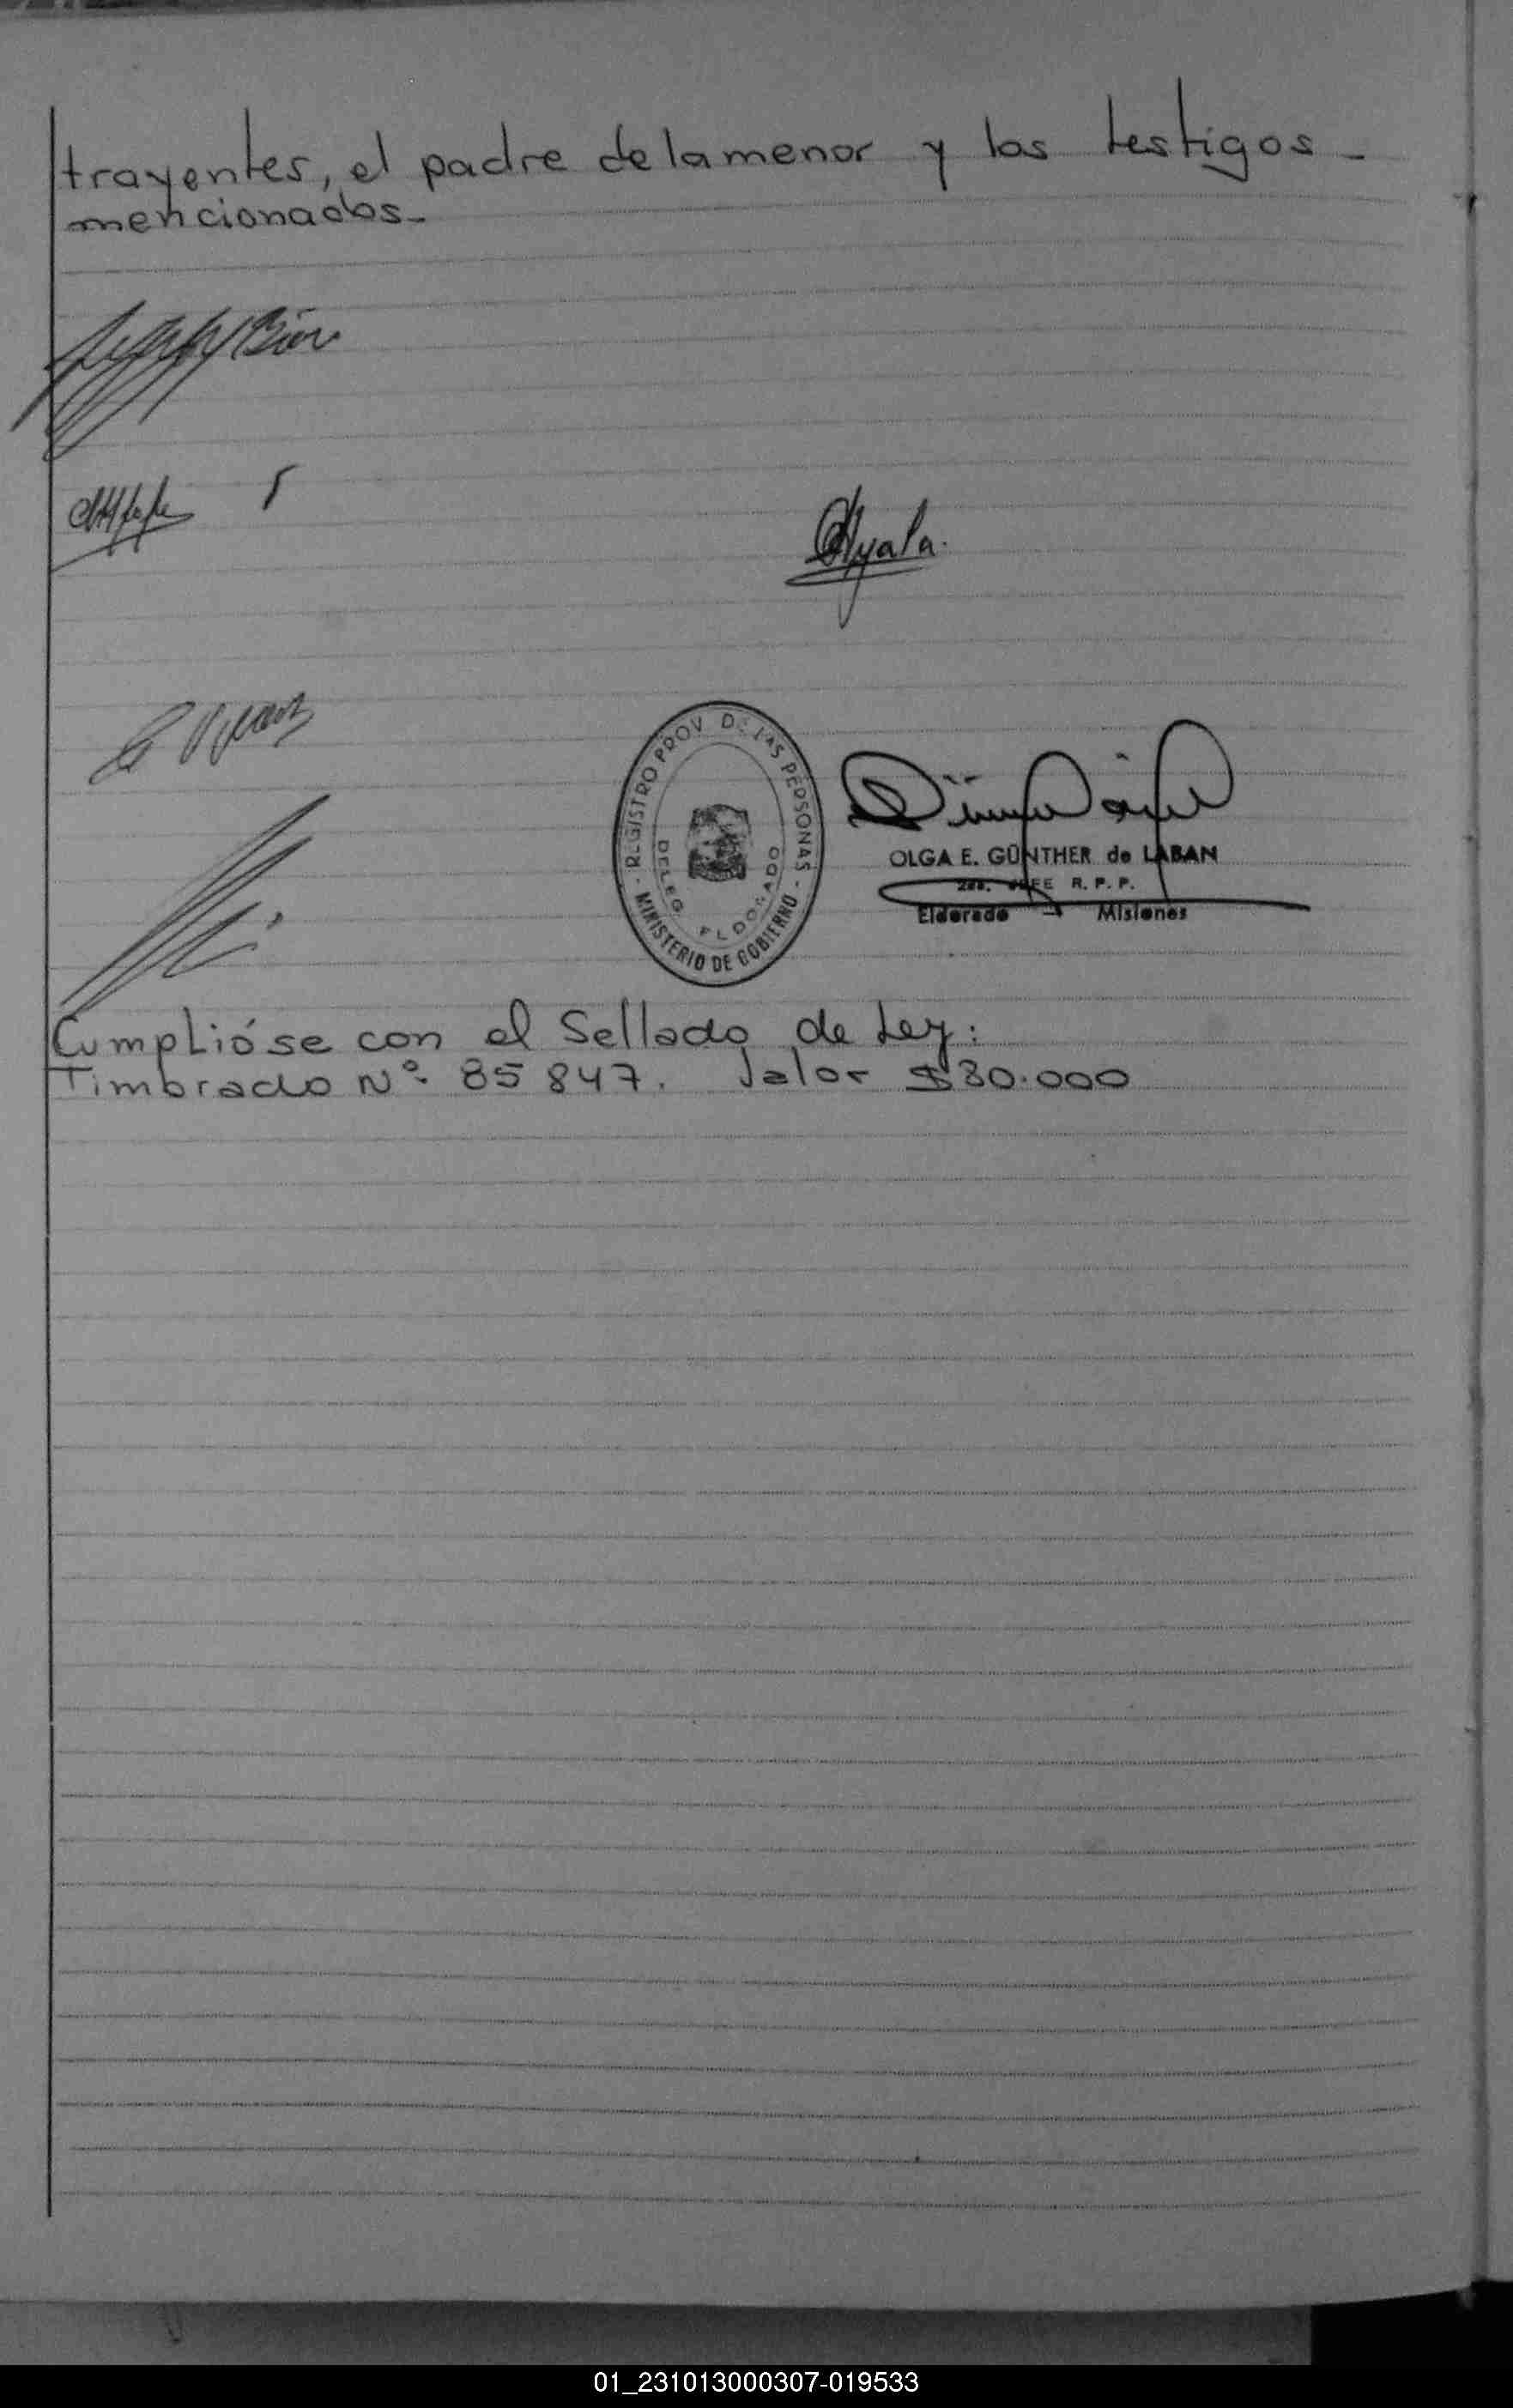 trayentes, el padre de la menor y los testigos -
mencionados -
Ayala.
REGISTRO PROV. DE LAS PERSONAS - MINISTERIO DE GOBIERNO -
DELEG. ELDORADO
OLGA E. GÜNTHER de LABAN
JEFE R. P. P.
Eldorado Misiones
Cumplióse con el Sellado de Ley:
Timbrado Nº 85 847. Valor $30.000
01_231013000307-019533